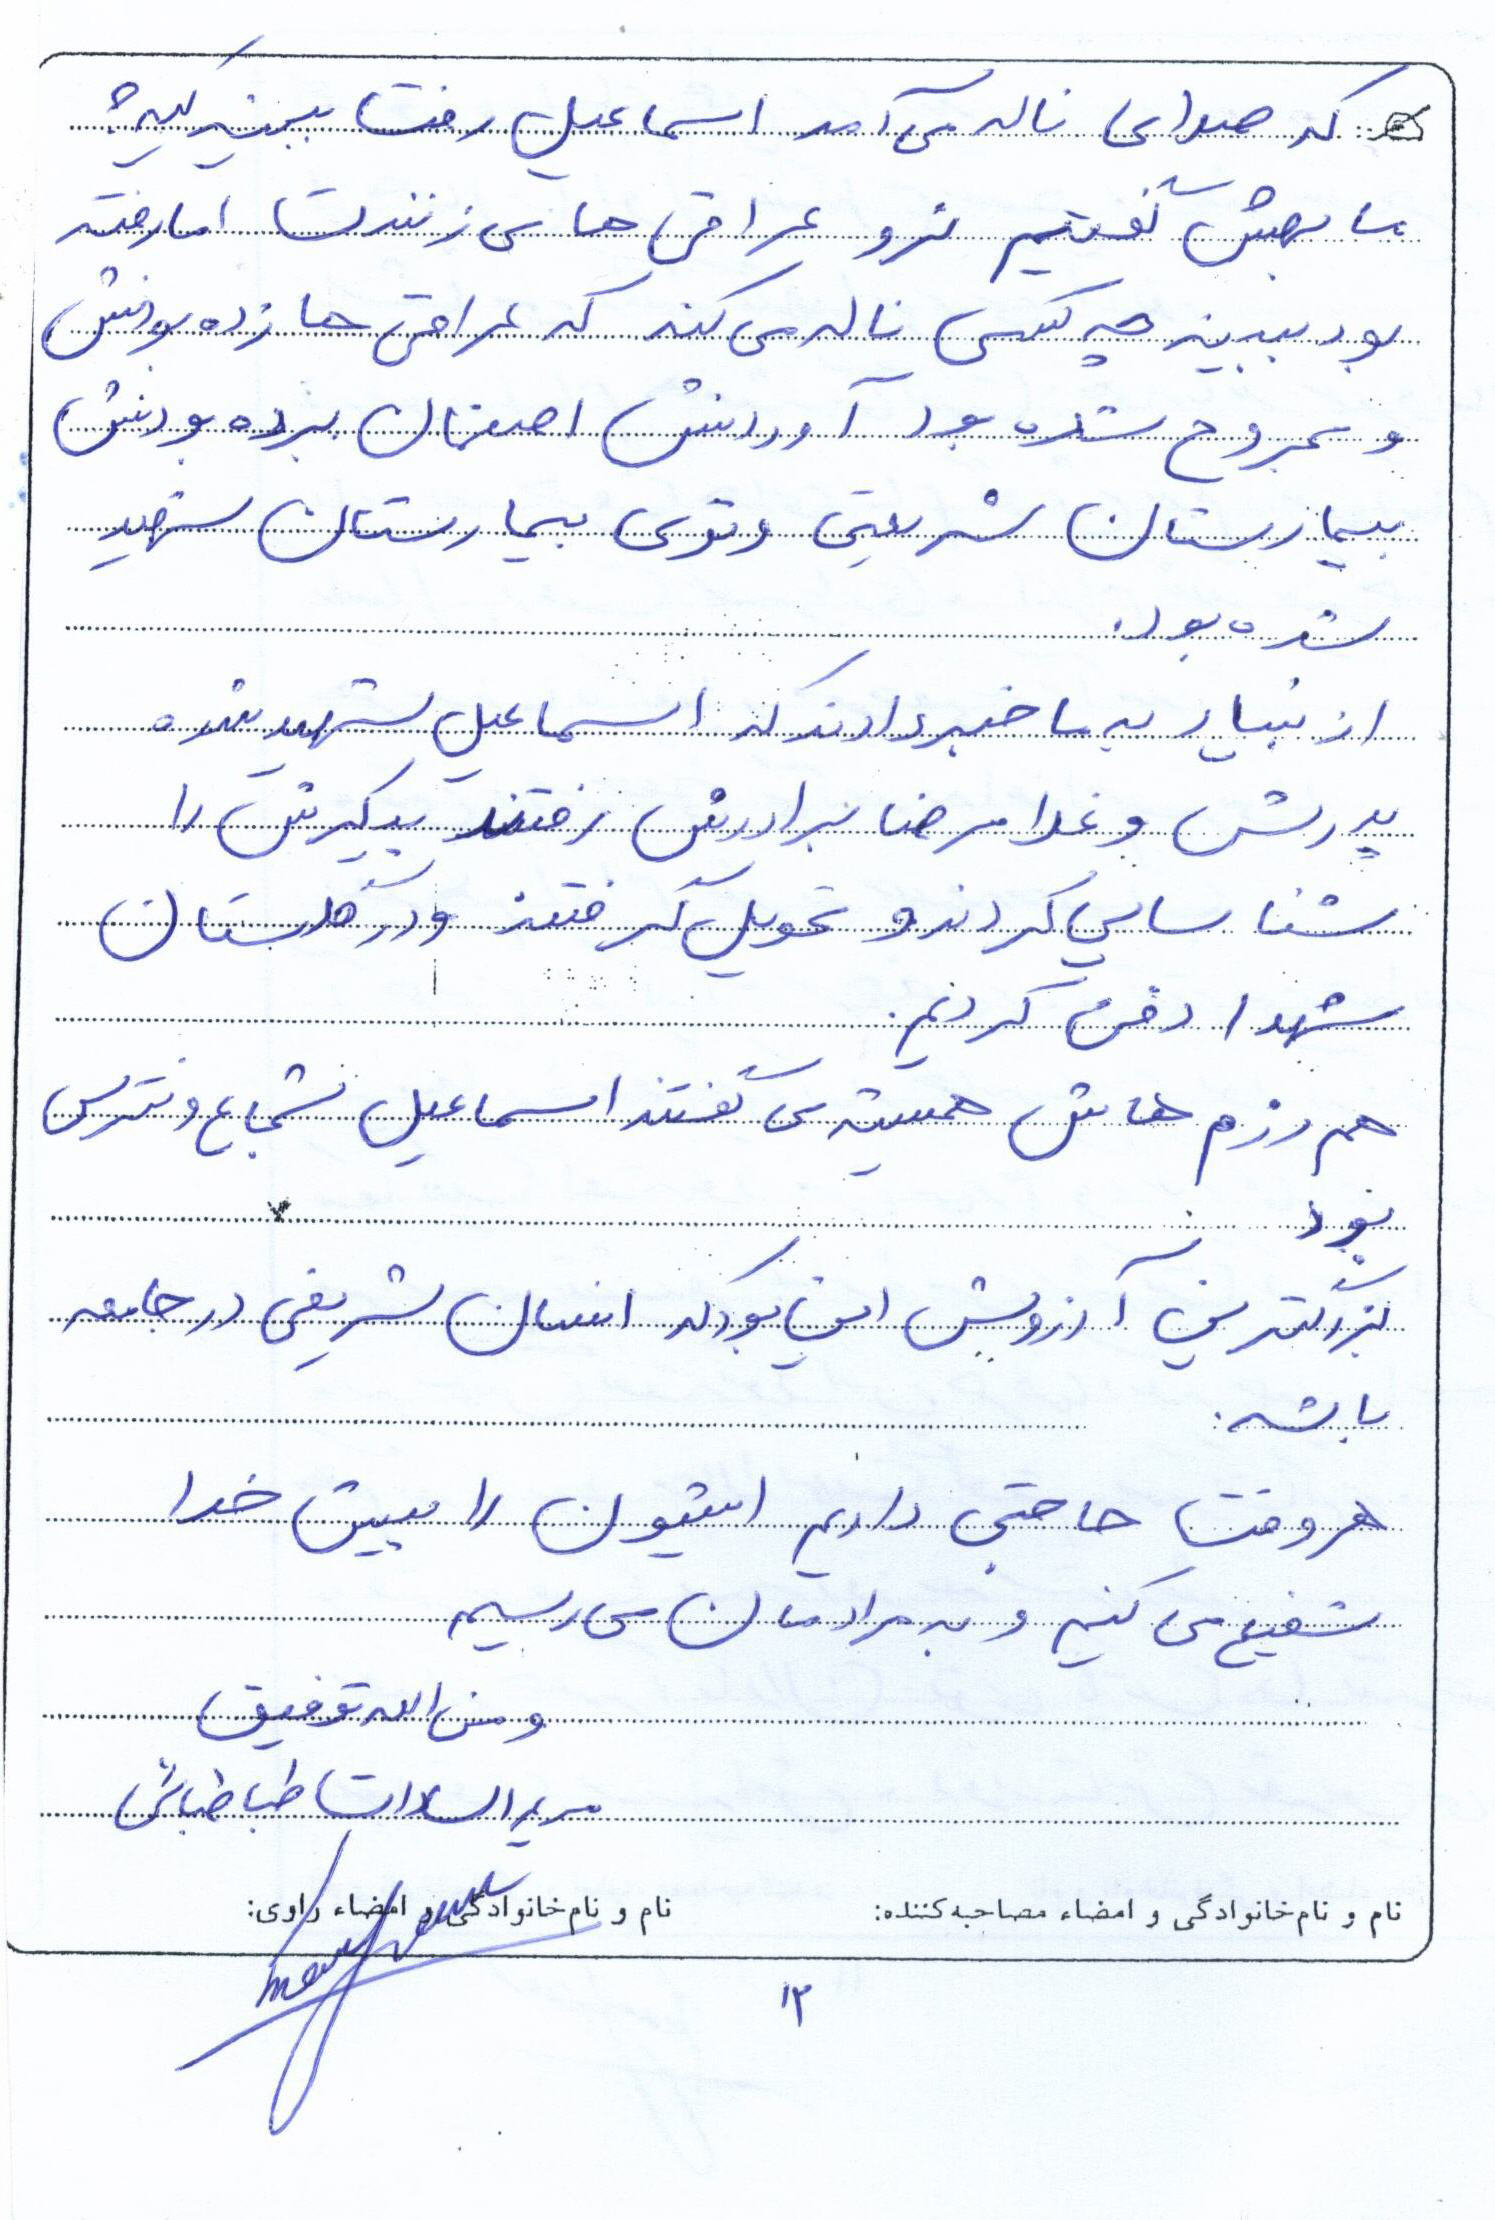 که صدای ناله می‌آمد اسماعیل رفت ببینه کیه؟
ما بهش گفتیم نرو عراقی ها می زنندت اما رفته
بود ببینه چه کسی ناله می کنه که عراقی ها زده بودنش
و مجروح شده بود آوردنش اصفهان برده بودنش
بیمارستان شریعتی و توی بیمارستان شهید
شده بود.
از بنیاد به ما خبر دادند که اسماعیل شهید شده
پدرش و غلامرضا برادرش رفتند پیکرش را
شناسایی کردند و تحویل گرفتند و در گلستان
شهدا دفن کردیم.
هم رزم هاش همیشه می گفتند اسماعیل شجاع و نترس
بود
بزرگترین آرزویش این بود که انسان شریفی در جامعه
باشه.
هر وقت حاجتی داریم ایشون را پیش خدا
شفیع می کنیم و به مرادمان می رسیم
و من الله توفیق
مریم السادات طباطبائی
نام و نام خانوادگی و امضاء مصاحبه کننده: نام و نام خانوادگی و امضاء راوی:
۱۲